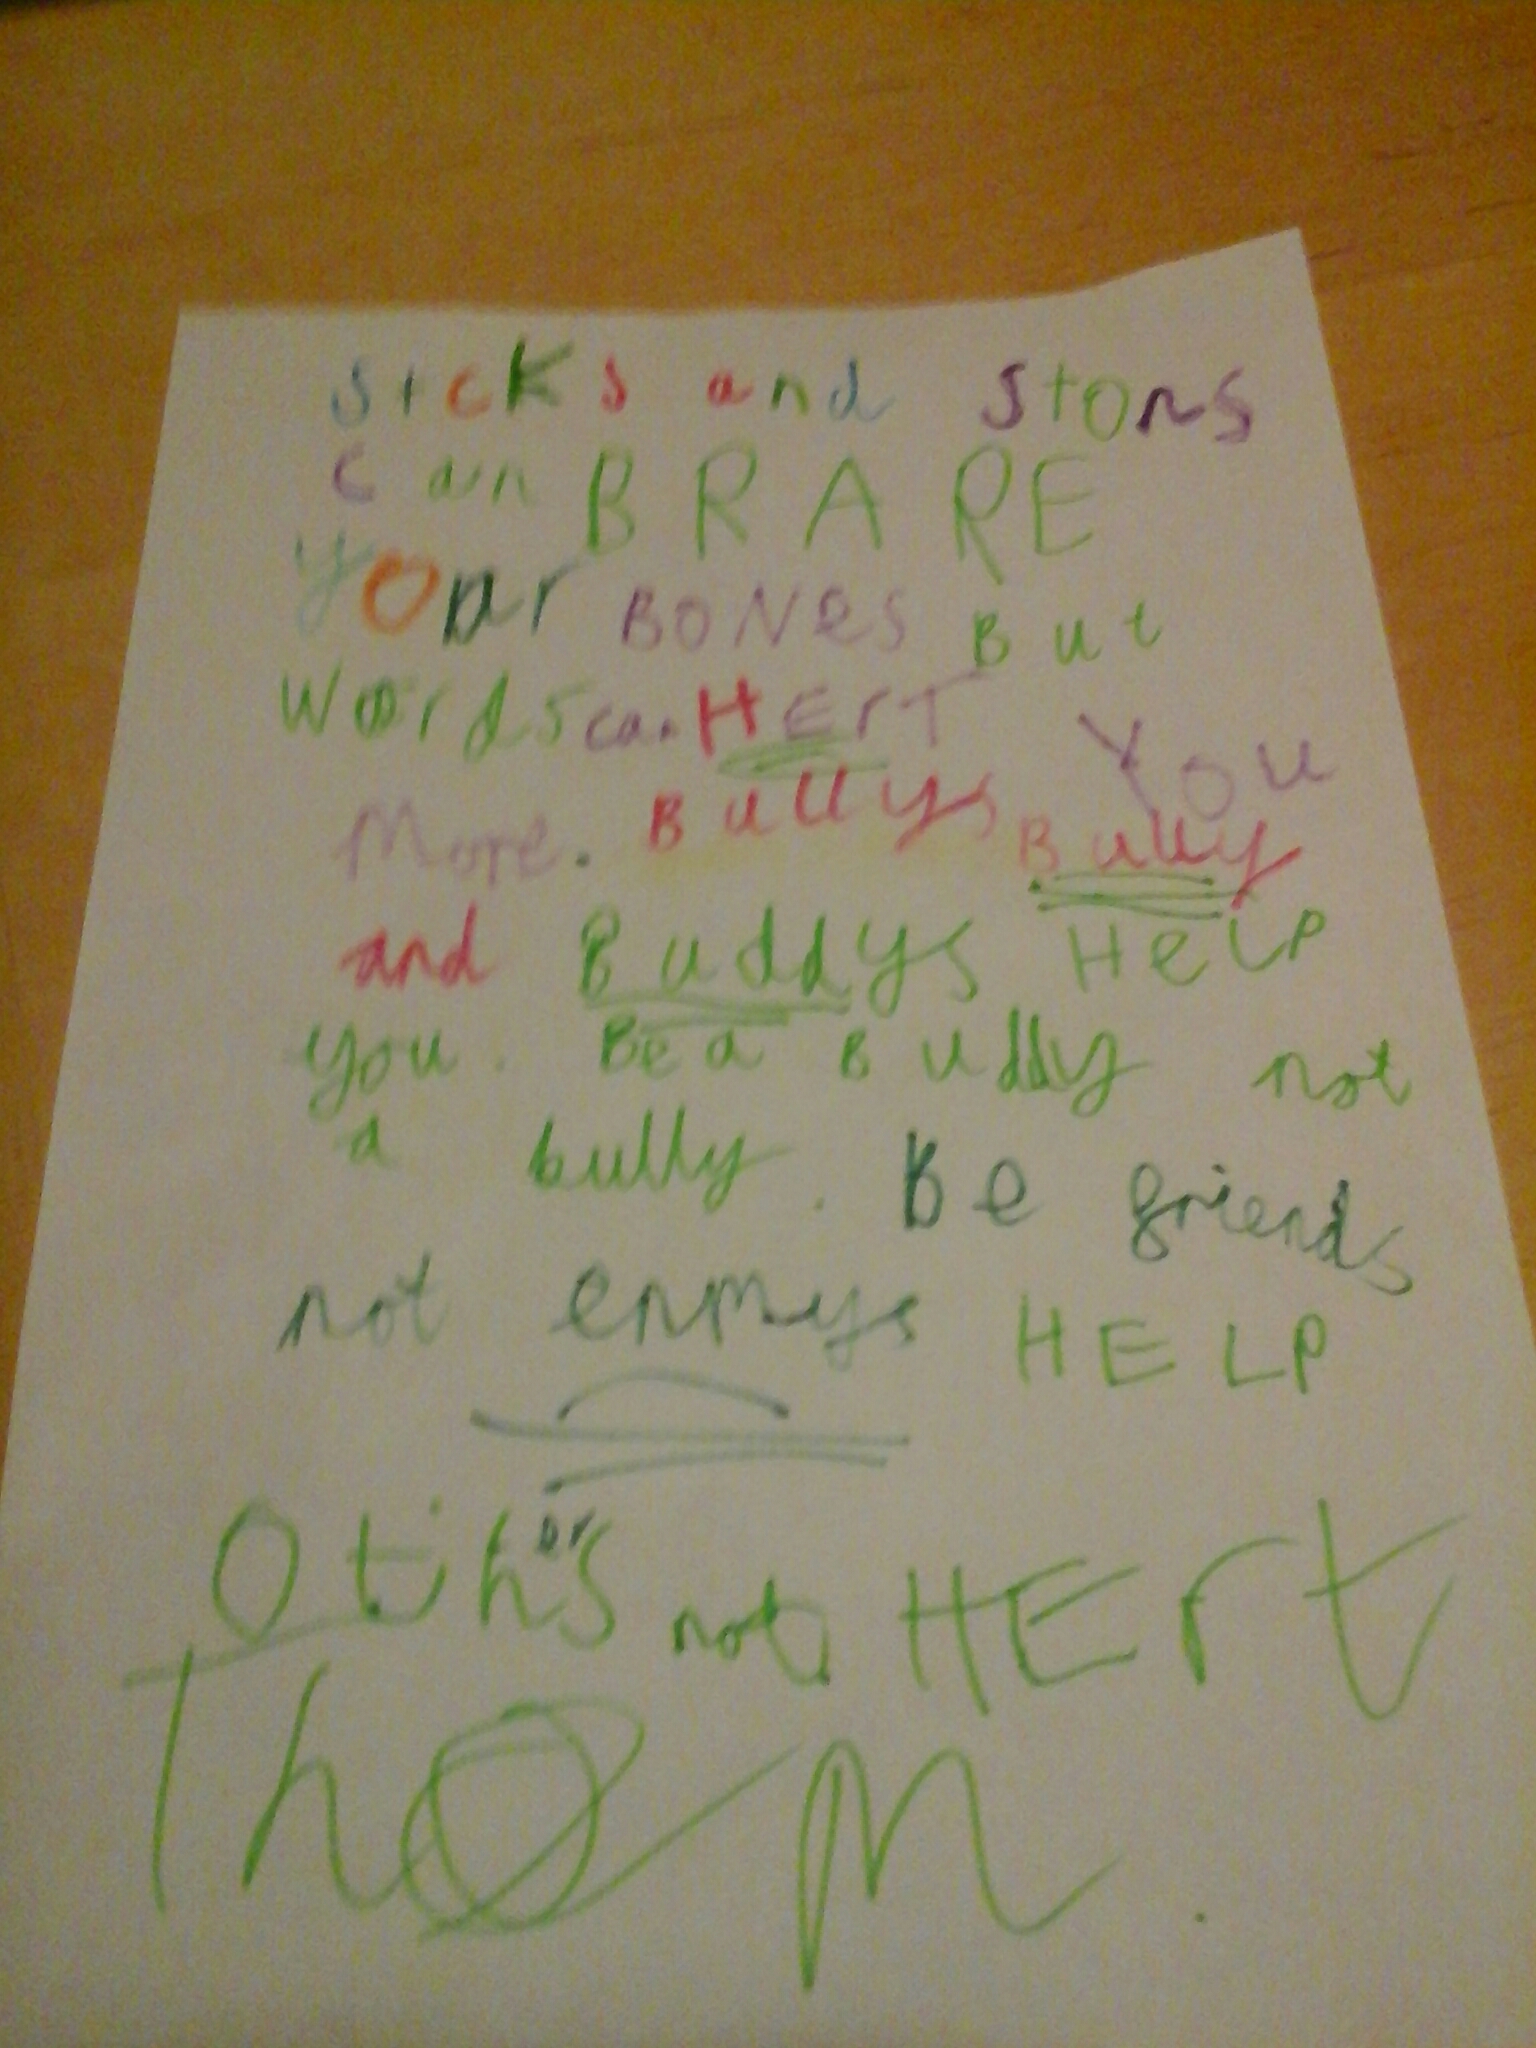 sticks and stons
can BRARE
your BONes But
words can HErT You
More. Bullys Bully
and Buddys HeLP
you. Be a Buddy not
a bully. Be friends
not enmys HELP
Othърs not HErt
Them.